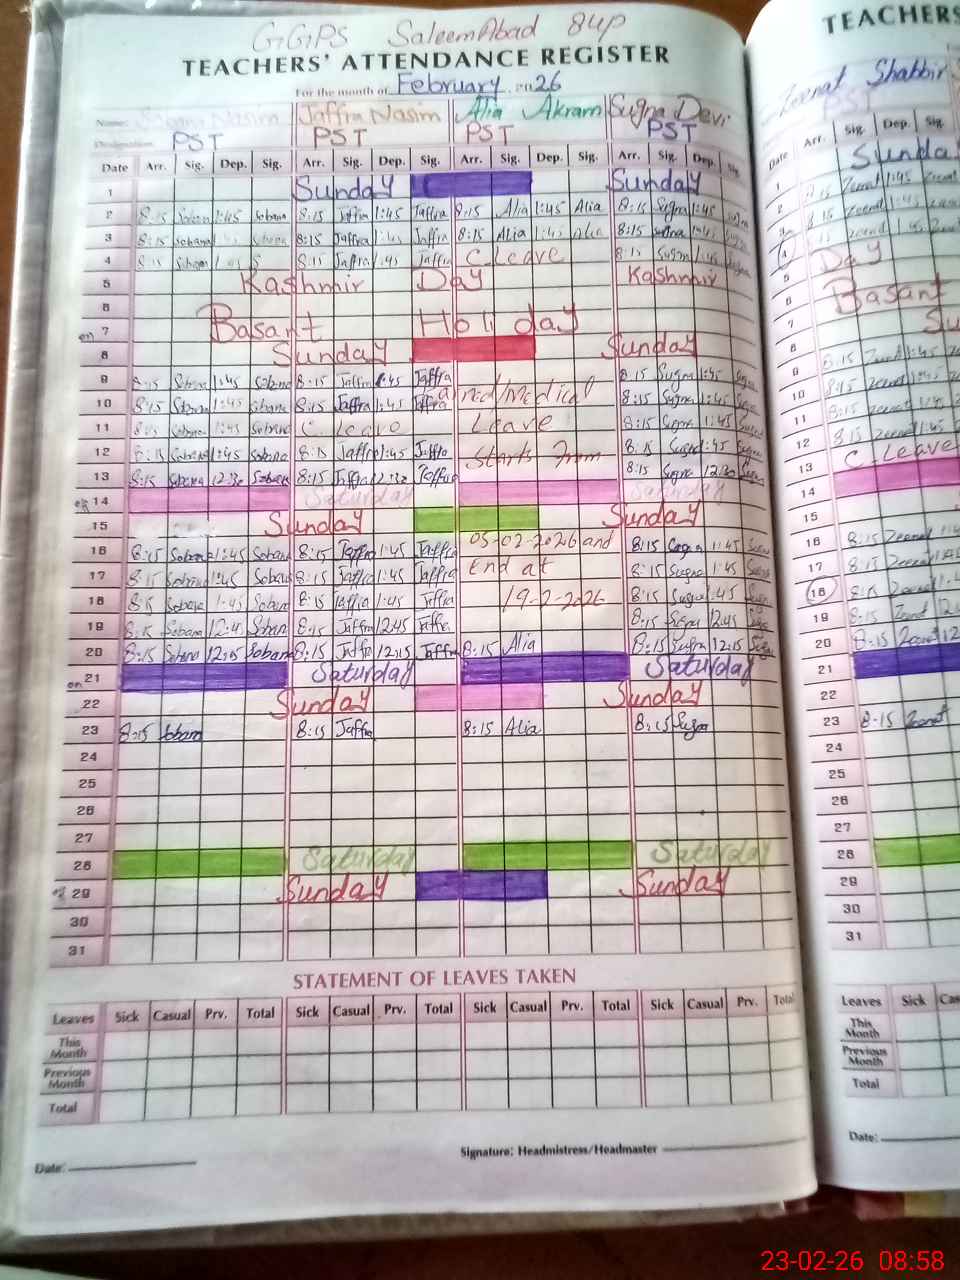 GGPS SaleemAbad 8up
TEACHERS' ATTENDANCE REGISTER
For the month of February 2026
Name: Nasim Jaffra Nasim Alia Akram Sugra Devi
Designation: PST PST PST PST
Date Arr. Sig. Dep. Sig. Arr. Sig. Dep. Sig. Arr. Sig. Dep. Sig. Arr. Sig. Dep. Sig.
1 Sunday Sunday
2 8:15 Sobana 1:45 Sobana 8:15 Jaffra 1:45 Jaffra 8:15 Alia 1:45 Alia 8:15 Sugra 1:45 Sugra
3 8:15 Sobana 1:45 8:15 Jaffra 1:45 Jaffra 8:15 Alia 1:45 Alia 8:15 Sugra 1:45 Sugra
4 8:15 8:15 Jaffra 1:45 Jaffra C. Leave 8:15 Sugra 1:45 Sugra
5 Kashmir Day Kashmir
6
7 Basant Holiday
8 Sunday Sunday
9 8:15 1:45 Sobana 8:15 Jaffra 1:45 Jaffra 8:15 Sugra 1:45 Sugra
10 8:15 Sobana 1:45 Sobana 8:15 Jaffra 1:45 Jaffra Medical 8:15 Sugra 1:45 Sugra
11 Sobana 1:45 Sobana C. Leave Leave 8:15 Sugra 1:45 Sugra
12 8:15 Sobana 1:45 Sobana 8:15 Jaffra 1:45 Jaffra Starts From 8:15 Sugra 1:45 Sugra
13 8:15 Sobana 12:30 Sobana 8:15 Jaffra 12:30 Jaffra 8:15 Sugra 12:30 Sugra
14 Saturday Saturday
15 Sunday Sunday
16 8:15 Sobana 1:45 Sobana 8:15 Jaffra 1:45 Jaffra 05-02-2026 and 8:15 Sugra 1:45 Sugra
17 8:15 Sobana 1:45 Sobana 8:15 Jaffra 1:45 Jaffra End at 8:15 Sugra 1:45 Sugra
18 8:15 Sobana 1:45 Sobana 8:15 Jaffra 1:45 Jaffra 19-2-2026 8:15 Sugra 1:45 Sugra
19 8:15 Sobana 12:45 Sobana 8:15 Jaffra 12:45 Jaffra 8:15 Sugra 12:45
20 8:15 Sobana 12:15 Sobana 8:15 Jaffra 12:15 Jaffra 8:15 Alia 8:15 Sugra 12:15 Sugra
21 Saturday Saturday
22 Sunday Sunday
23 8:15 Sobana 8:15 Jaffra 8:15 Alia 8:15 Sugra
24
25
26
27
28 Saturday Saturday
29 Sunday Sunday
30
31
STATEMENT OF LEAVES TAKEN
Leaves Sick Casual Prv. Total Sick Casual Prv. Total Sick Casual Prv. Total Sick Casual Prv. Total
This Month
Previous Month
Total
Signature: Headmistress/Headmaster
Date:
TEACHERS
Zeenat Shabbir
PST
Date Arr. Sig. Dep. Sig.
Sunda
1
2 8:15 Zeenat 1:45 Zeenat
3 8:15 Zeenat 1:45 Zeenat
4 8:15 Zeenat 1:45
5 Day
6 Basant
7 Su
8
9 8:15 Zeenat 1:45
10 8:15 Zeenat 1:45
11 8:15 Zeenat 1:45
12 8:15 Zeenat 1:45
13 C. Leave
14
15
16 8:15 Zeenat
17 8:15 Zeenat 1:45
18 8:15 Zeenat
19 8:15 Zeenat
20 8:15 Zeenat
21
22
23 8:15 Zeenat
24
25
26
27
28
29
30
31
Leaves Sick
This Month
Previous Month
Total
Date:
23-02-26 08:58